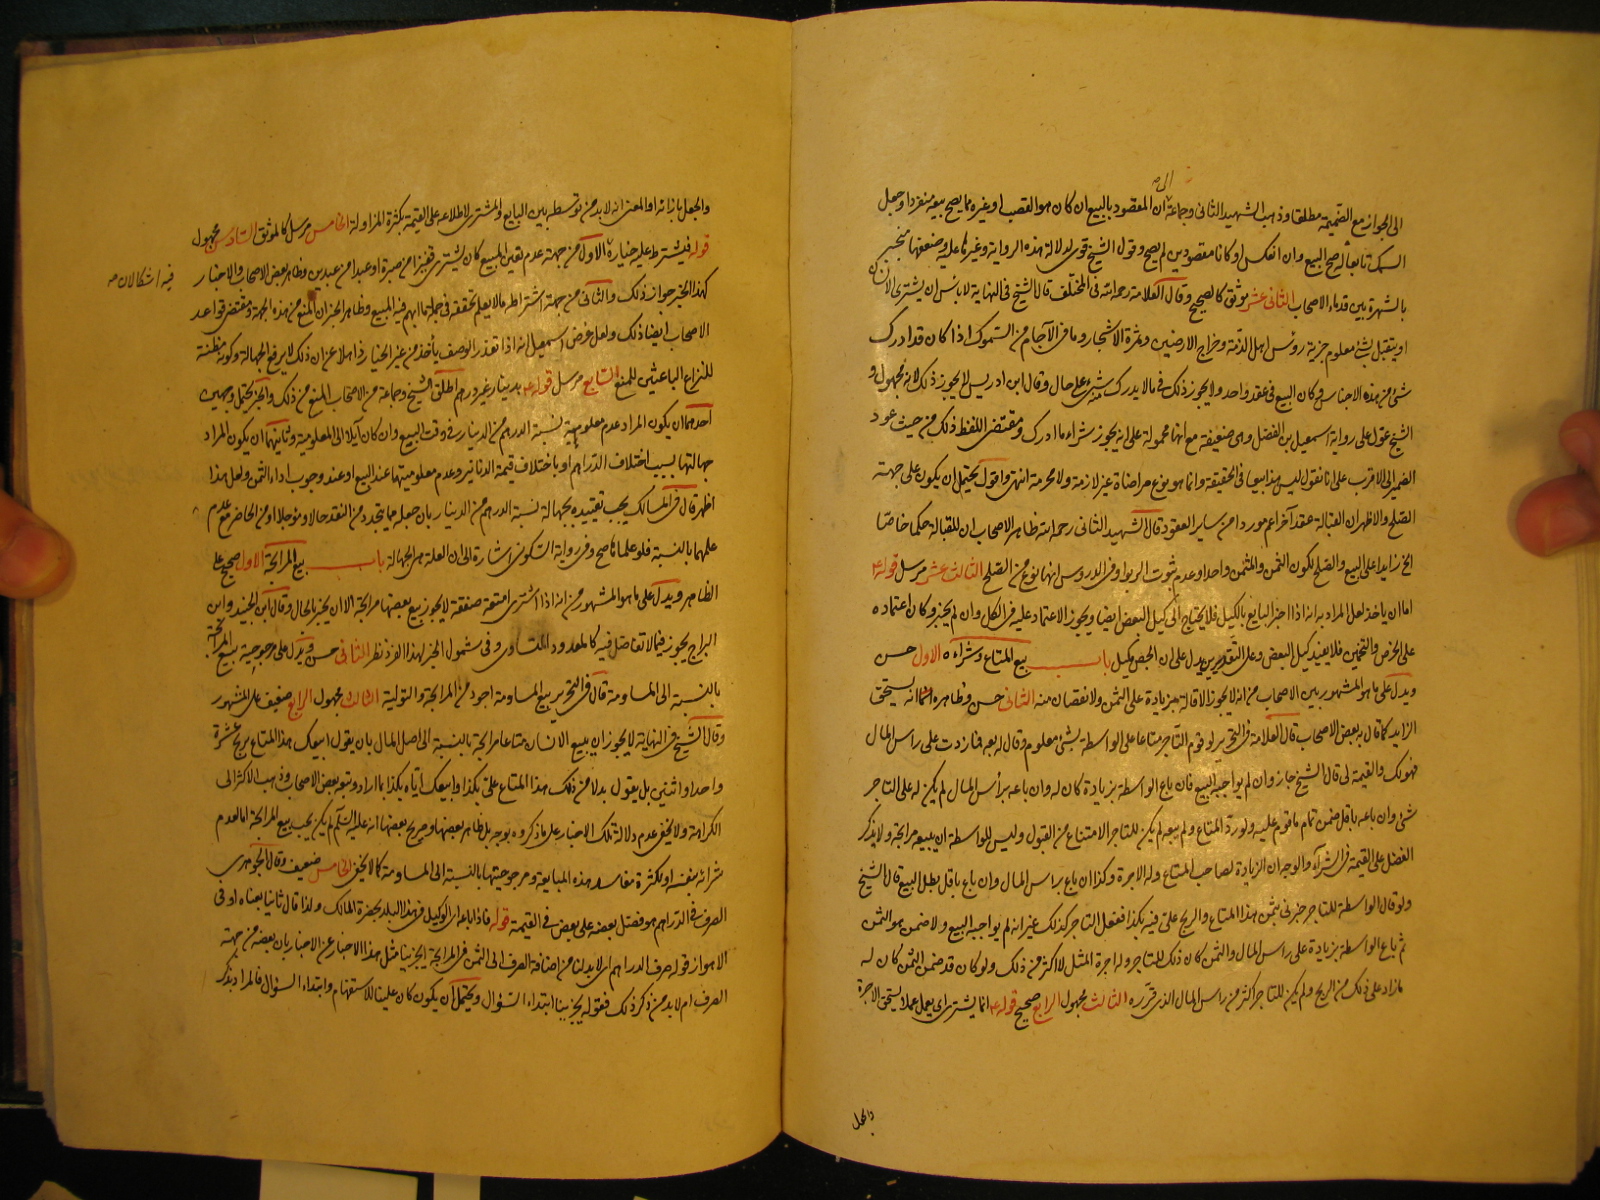 الى
الى الجواز مع الضميمة مطلقا وذهب الشهيد الثانى وجماعة ان المقصود بالبيع ان كان هو القصب او غيره مما يصح بيعه منفردا وجعل
السمك تابعا له صح البيع وان انعكس او كانا مقصودين لم يصح وقول الشيخ قوى لدلالة هذه الرواية وغيرها عليه وضعفها منجبر
بالشهرة بين قدماء الاصحاب الثانى عشر موثق كالصحيح وقال العلامة رحمه الله فى المختلف قال الشيخ فى النهاية لا بأس ان يشترى الانسان
او يتقبل بشئ معلوم جزية رؤس اهل الذمة وخراج الارضين وثمرة الاشجار وما فى الآجام من السموك اذا كان قد ادرك
شئ من هذه الاجناس وكان البيع فى عقد واحد ولا يجوز ذلك فى ما لا يدرك منه شئ على حال وقال ابن ادريس لا يجوز ذلك لانه مجهول و
الشيخ عول على رواية اسمعيل بن الفضل وهى ضعيفة مع انها محمولة على انه يجوز شراء ما ادرك ومقتضى اللفظ ذلك من حيث عود
الضمير الى الاقرب على انا نقول ليس هذا بيعا فى الحقيقة وانما هو نوع مراضاة غير لازمة ولا محرمة انتهى واقول يحتمل ان يكون على جهة
الصلح والاظهر ان القبالة عقد آخر اعم موردا من ساير العقود قال الشهيد الثانى رحمه الله ظاهر الاصحاب ان للقبالة حكما خاصا
الخ زايدا على البيع والصلح لكون الثمن والمثمن واحدا وعدم ثبوت الربوا وفى الدروس انها نوع من الصلح الثالث عشر مرسل قوله
اما ان ياخذ لعل المراد به انه اذا اخبر البايع بالكيل فلا يحتاج الى كيل البعض ايضا ويجوز الاعتماد عليه فى الكل وان لم يخبر وكان اعتماده
على الخرص والتخمين فلا يفيد كيل البعض وعلى التقديرين يدل على ان الجص مكيل باب بيع المتاع وشراءه الاول حسن
ويدل على ما هو المشهور بين الاصحاب من انه لا يجوز الاقالة بزيادة على الثمن ولا نقصان منه الثانى حسن وظاهره انه يستحق
الزايد كما قال به بعض الاصحاب قال العلامة فى التحرير لو قوم التاجر متاعا على الواسطة بشئ معلوم وقال له بعه فما زدت على راس المال
فهو لك والقيمة لى قال الشيخ جاز وان لم يواجبه البيع فان باع الواسطة بزيادة كان له وان باعه براس المال لم يكن له على التاجر
شئ وان باعه باقل ضمن تمام ما قوم عليه ولو رد المتاع ولم يبعه لم يكن للتاجر الامتناع من القبول وليس للواسطة ان يبيعه مرابحة ولا يذكر
الفضل على القيمة فى الشراء والوجه ان الزيادة لصاحب المتاع وله الاجرة وكذا ان باع براس المال وان باع باقل بطل البيع قال الشيخ
ولو قال الواسطة للتاجر خبرنى بثمن هذا المتاع والربح على فيه بكذا ففعل التاجر كذلك غير انه لم يواجبه البيع ولا ضمن هو الثمن
ثم باع الواسطة بزيادة على راس المال والثمن كان ذلك للتاجر وله اجرة المثل لا اكثر من ذلك ولو كان قد ضمن الثمن كان له
ما زاد على ذلك من الربح ولم يكن للتاجر اكثر من راس المال الذى قرره الثالث مجهول الرابع صحيح قوله انما يشترى اى يعمل عملا يستحق الاجرة
والجعل
والجعل بازائه او المعنى انه لا بد من توسطه بين البايع والمشترى لاطلاعه على القيمة بكثرة المزاولة الخامس مرسل كالموثق السادس مجهول
قوله فيشترط عليه خياره الاول من جهة عدم تعين المبيع كان يشترى قفيزا من صبرة او عبدا من عبدين وظاهر بعض الاصحاب والاخبار
فيه اشكالان
كهذا الخبر جواز ذلك والثانى من جهة اشتراطه ما لا يعلم تحققه فى جملة ما ابهم فيه المبيع وظاهر الخبر ان المنع من هذه الجهة ومقتضى قواعد
الاصحاب ايضا ذلك ولعل غرض اسمعيل انه اذا تعذر الوصف يأخذ من غير الخيار ذاهلا عن ان ذلك لا يرفع الجهالة وكونه مظنة
للنزاع الباعثين للمنع السابع مرسل قوله بدينار غير درهم اطلق الشيخ وجماعة من الاصحاب المنع من ذلك والخبر يحتمل وجهين
احدهما ان يكون المراد عدم معلومية نسبة الدرهم من الدينار فى وقت البيع وان كان آيلا الى المعلومية وثانيهما ان يكون المراد
جهالتها بسبب اختلاف الدراهم او باختلاف قيمة الدنانير وعدم معلوميتها عند البيع او عند وجوب اداء الثمن ولعل هذا
اظهر قال فى المسالك يجب تقييده بجهالة نسبة الدرهم من الدينار بان جعله مما يتجدد من النقد حالا او مؤجلا او من الحاضر مع عدم
علمهما بالنسبة فلو علماه صح وفى رواية السكونى اشارة الى ان العلة هى الجهالة باب بيع المرابحة الاول صحيح على
الظاهر ويدل على ما هو المشهور من انه اذا اشترى امتعة صفقة لا يجوز بيع بعضها مرابحة الا ان يخبر بالحال وقال ابن الجنيد وابن
البراج يجوز فيما لا تفاضل فيه كالمعدود المتساوى وفى شمول الخبر لهذا الفرد نظر الثانى حسن ويدل على مرجوحية بيع المرابحة
بالنسبة الى المساومة قال فى التحرير بيع المساومة اجود من المرابحة والتولية الثالث مجهول الرابع ضعيف على المشهور
وقال الشيخ فى النهاية لا يجوز ان يبيع الانسان متاعا مرابحة بالنسبة الى اصل المال بان يقول ابيعك هذا المتاع بربح عشرة
واحدا او اثنين بل يقول بدلا من ذلك هذا المتاع على بكذا وابيعك اياه بكذا بما اراد وتبعه بعض الاصحاب وذهب الاكثر الى
الكراهة ولا يخفى عدم دلالة تلك الاخبار على ما ذكروه بوجه بل ظاهر بعضها وصريح بعضها انه عليه السلم لم يكن يحب بيع المرابحة اما لعدم
شرائه بنفسه او لكثرة مفاسد هذه المبايعة ومرجوحيتها بالنسبة الى المساومة كما لا يخفى الخامس ضعيف وقال الجوهرى
الصرف فى الدراهم هو فضل بعضه على بعض فى القيمة قوله فاذا باعه اى الوكيل فى هذا البلد بحضرة المالك ولذا قال ثانيا بعناه او فى
الاهواز قوله صرف الدراهم اى لا بد لنا من اضافة الصرف الى الثمن فى المرابحة ايجزينا مثل هذا الاخبار عن الاخبار بان بعضه من جهة
الصرف ام لا بد من ذكر ذلك فقوله يجزينا ابتداء السؤال ويحتمل ان يكون كان علينا للاستفهام وابتداء السؤال فالمراد بذكر